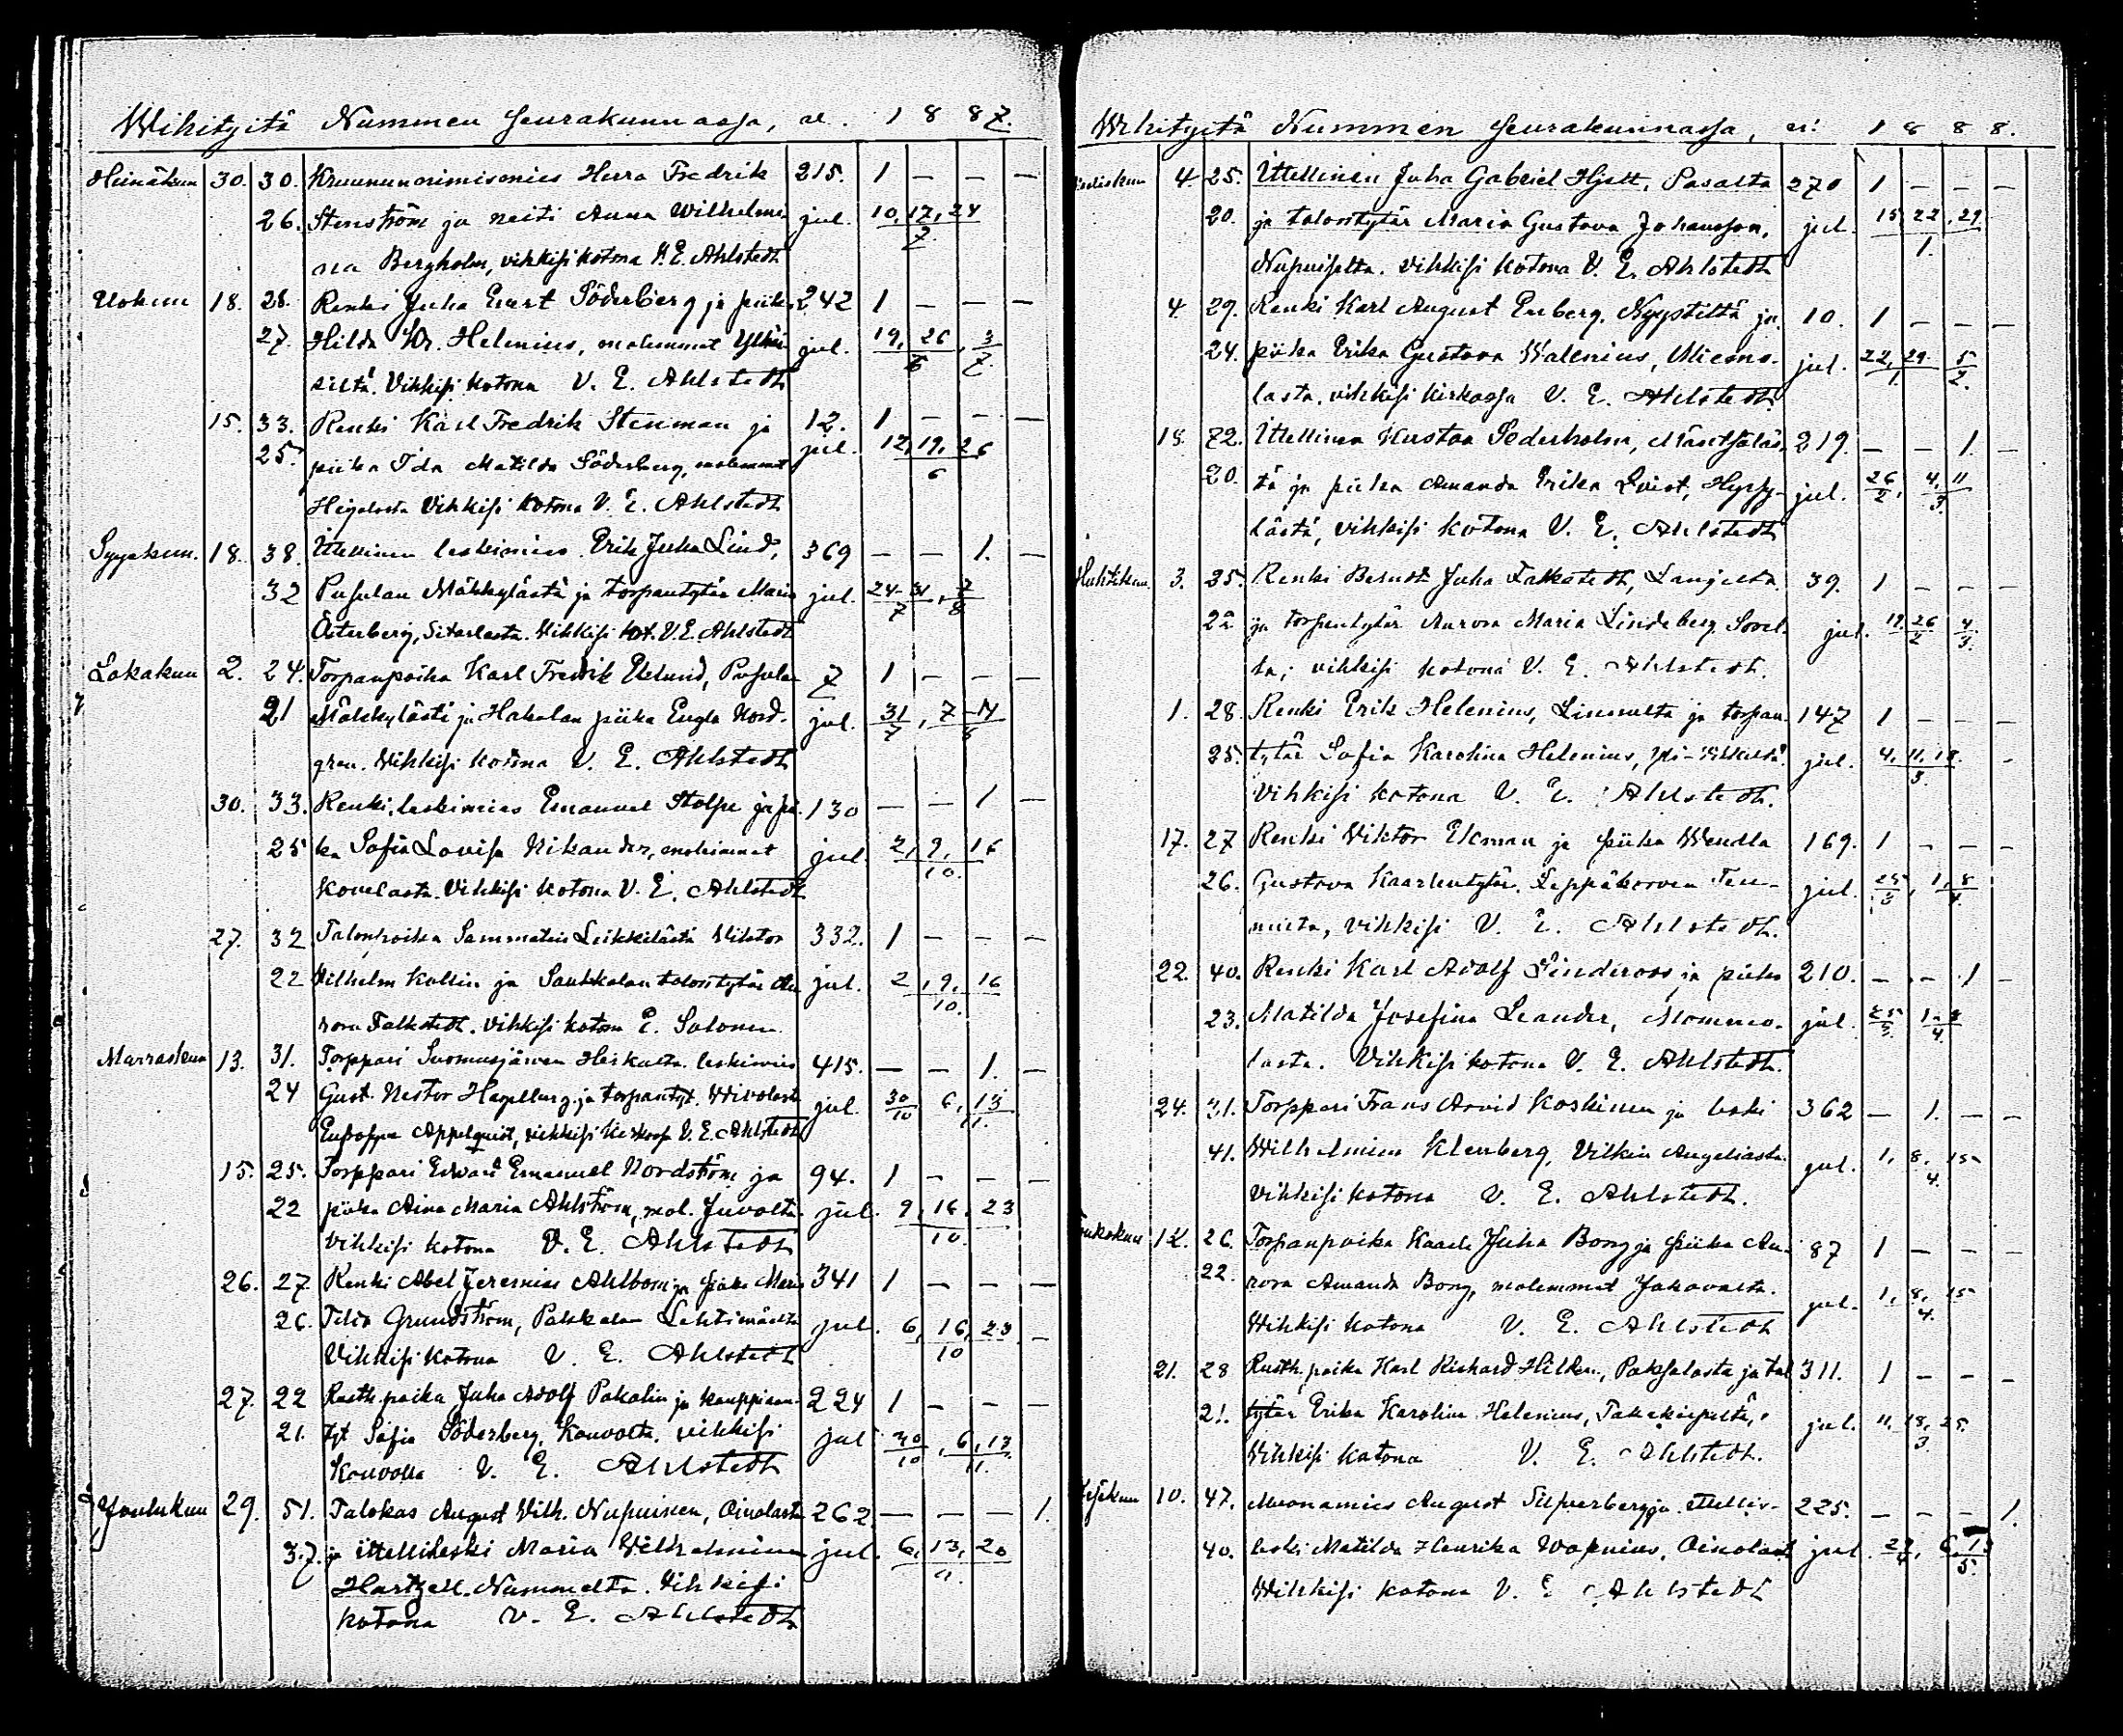 Wihityitä Nummen seurakunnassa, v. 1 8 8 7.
Heinäkuu 30. 30. Kruununnimismies Herra Fredrik 215. 1 — — —
26. Stenström ja neiti Anna Wilhelmi jul. 10, 17, 24
na Bergholm, vihkisi kotona V. E. Ahlstedt 7.
Elokuu 18. 28. Renki Juha Evert Söderberg ja piika 242 1 — — —
27. Hilda Kr. Helenius, molemmat jul. 19, 26, 3
Vihkisi kotona V. E. Ahlstedt 6 7.
15. 33. Renki Karl Fredrik Stenman ja 12. 1 — — —
25. piika Ida Matilda Söderberg, molemmat jul. 12, 19, 26
Vihkisi kotona V. E. Ahlstedt 6
Syyskuu. 18. 38. Itellinen leskimies Erik Juha Lind, 369 — — 1. —
32 Pusulan Mäkkylästä ja torpantytär Maria jul. 24-31, 7
Österberg, Vihkisi kot. V. E. Ahlstedt 7 8
Lokakuu 2. 24. Torpanpoika Karl Fredrik Eklund, Pusula 7 1 — — —
21 Mäkkylästä ja Hakalan piika Engla Nord- jul. 31, 7-14
gren. Vihkisi kotona V. E. Ahlstedt
30. 33. Renki, leskimies Emanuel Stolpe ja pii- 130 — — 1 —
25 ka Sofia Lovisa Nikander, molemmat jul. 2, 9, 16
Kovelasta. Vihkisi kotona V. E. Ahlstedt 10.
27. 32 Talonpoika Sammatin Leikkilästä Viktor 332. 1 — — —
22 Vilhelm Kollin ja talontytär Au jul. 2, 9, 16
rora Falkstedt. Vihkisi kotona E. Salonen. 10.
Marraskuu 13. 31. Torppari Suomusjärven leskimies 415. — — 1. —
24 Gust. Nestor ja torpantyt. jul. 30 6, 13
Appelqvist, vihkisi kirkossa V. E. Ahlstedt 10 11.
15. 25. Torppari Edvard Emanuel Nordström ja 94. 1 — — —
22 piika Aina Maria Ahlström, mol. jul. 9, 16, 23
Vihkisi kotona V. E. Ahlstedt 10.
26. 27. Renki Abel Jeremias Ahlbom ja piika Maria 341 1 — — —
26. Grundström, Pakkalan Lehtimäeltä jul. 6, 16, 23 —
Vihkisi kotona V. E. Ahlstedt 10
27. 22 Rusth. poika Juha Adolf Pakalin ja kauppiaan 224 1 — — —
21. tyt Sofia Söderberg, vihkisi jul 30, 6, 13
V. E. Ahlstedt 10 11.
Joulukuu 29. 51. Talokas August Vilh. Nupuinen, Oinolasta 262. — — — 1.
37. ja itellileski Maria Wilhelmina jul. 6, 13, 20
Hartzell. Nummelta. Vihkisi 11.
kotona V. E. Ahlstedt
Wihityitä Nummen seurakunnassa, v. 1 8 8 8.
4 25. Itellinen Juha Gabriel Hjelt, 270 1 — — —
20. ja talontytär Maria Gustava Johansson, jul. 15, 22, 29
Vihkisi kotona V. E. Ahlstedt 1.
4 29. Renki Karl August Enberg, ja 10. 1 — — —
24. piika Erika Gustava Wallenius, jul. 22, 29 5
lasta, vihkisi kirkossa V. E. Ahlstedt. 1. 2.
18. 72. Itellinen Kustaa Söderholm, 219. — — 1. —
20. tä ja piika Amanda Erika Qvist, Hyrsy- jul. 26, 4, 11
lästä, vihkisi kotona V. E. Ahlstedt 2 3.
Huhtikuu 3. 35. Renki Berndt Juha Falkstedt, 39. 1 — — —
22 ja torpantytär Aurora Maria Lindeberg jul. 19, 26 4
ta, vihkisi kotona V. E. Ahlstedt. 2 3.
1. 28. Renki Erik Helenius, ja torpan- 147 1 — — —
25. tytär Sofia Karolina Helenius, jul. 4, 11, 18. —
Vihkisi kotona V. E. Ahlstedt. 3.
17. 27 Renki Viktor Ekman ja piika Wendla 169. 1 — — —
26. Gustava Kaarlentytär, Leppäkorven jul. 25, 1, 8
vihkisi V. E. Ahlstedt. 3 4.
22. 40. Renki Karl Adolf Lindroos ja piika 210. — — 1 —
23. Matilda Josefina Leander, Mommo- jul. 25 1-8
lasta. Vihkisi kotona V. E. Ahlstedt. 3. 4.
24. 31. Torppari Frans Arvid Koskinen ja leski 362 — 1. — —
41. Wilhelmina Klenberg, jul. 1, 8, 15
Vihkisi kotona V. E. Ahlstedt. 4.
Toukokuu 12. 26. Torpanpoika Kaarle Juha Bong ja piika Au- 87 1 — — —
22. rora Amanda Bong, molemmat jul. 1, 8, 15
Wihkisi kotona V. E. Ahlstedt 4.
21. 28 Rusth. poika Karl Rikhard Hilden, ja tal 311. 1 — — —
21. tytär Erika Karolina Helenius, jul. 11, 18, 25.
Vihkisi kotona V. E. Ahlstedt. 3.
Kesäkuu 10. 47. Muonamies August Silfverberg ja itellis- 225. — — — 1.
40. leski Matilda Henrika Oinolasta jul.
Wihkisi kotona V. E. Ahlstedt 5.